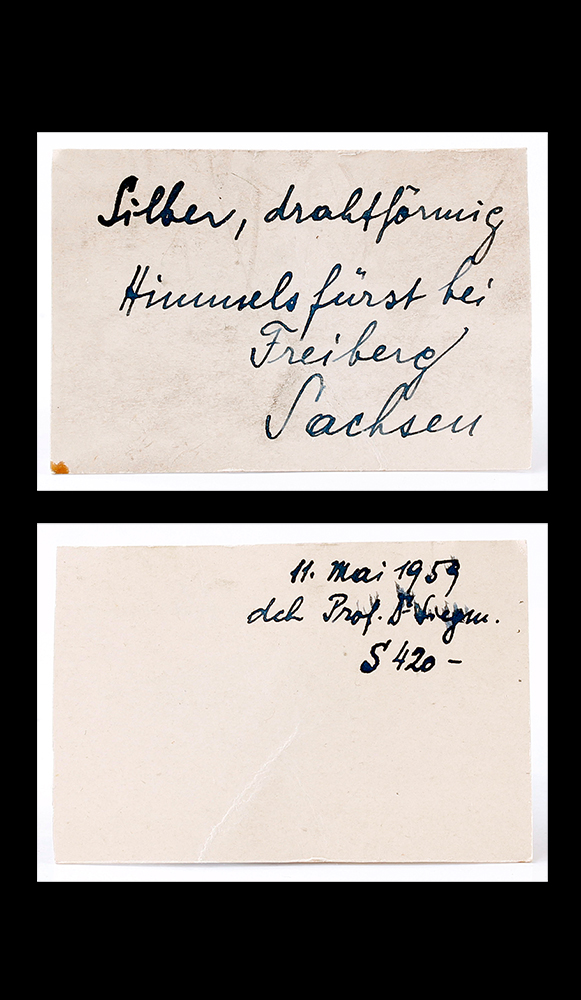 Silber, drahtförmig
Himmelsfürst bei
Freiberg
Sachsen
11. Mai 1959
dch Prof. Dr
S 420 -